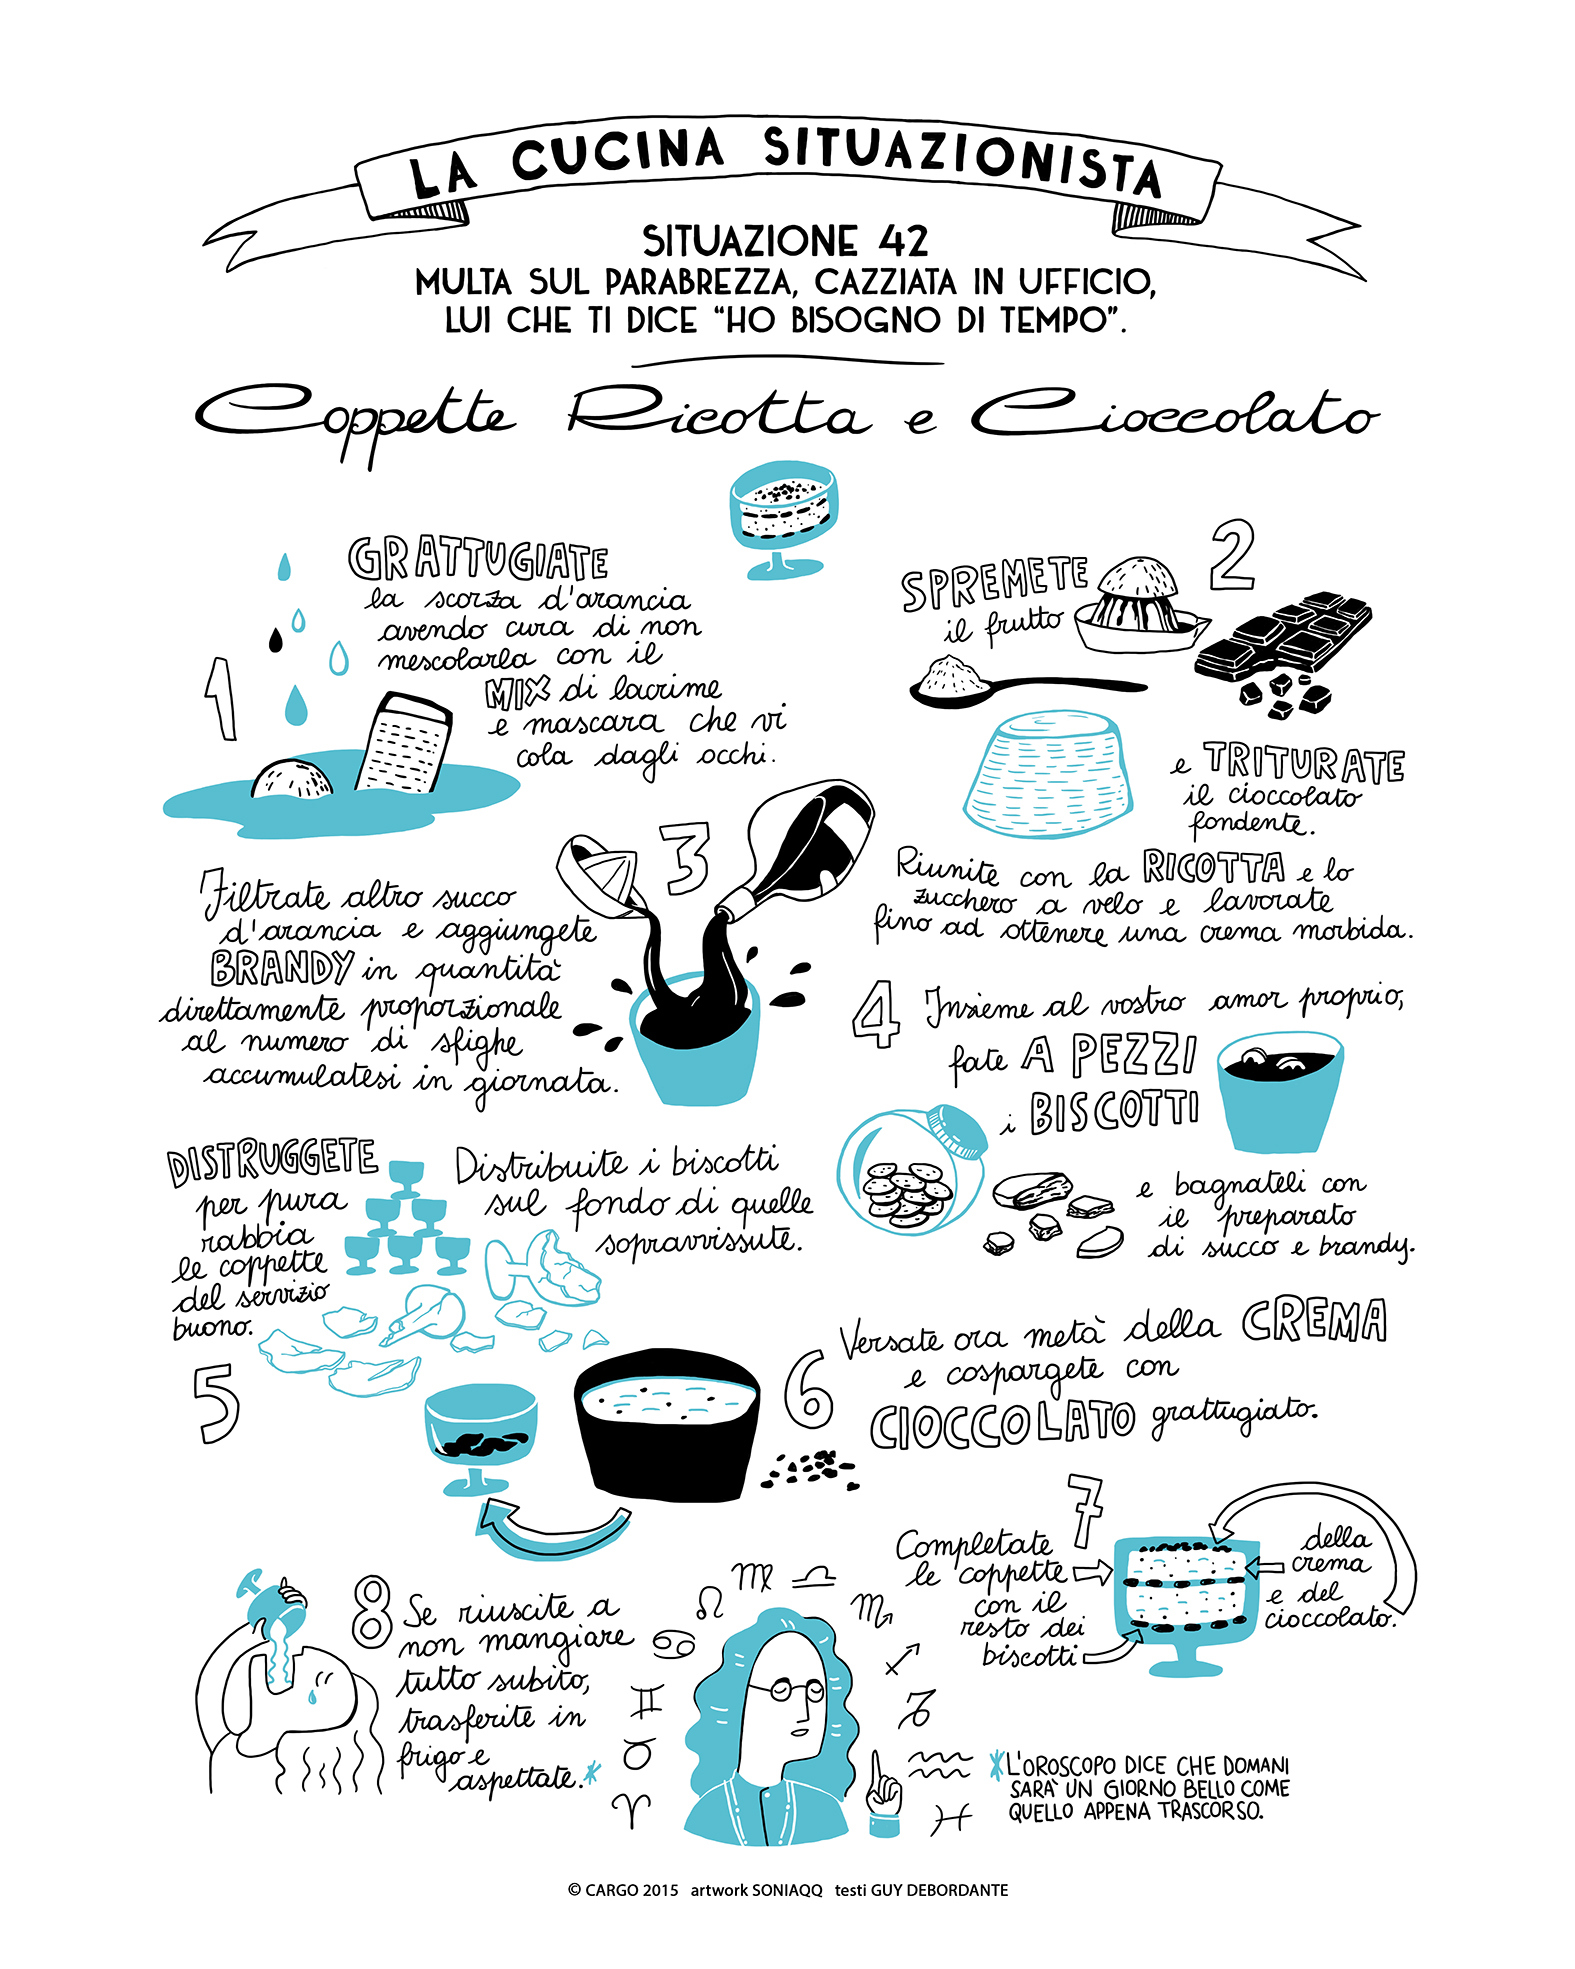 LA CUCINA SITUAZIONISTA
SITUAZIONE 42
MULTA SUL PARABREZZA, CAZZIATA IN UFFICIO,
LUI CHE TI DICE “HO BISOGNO DI TEMPO”.
Coppette Ricotta e Cioccolato
1
GRATTUGIATE
la scorza d'arancia
avendo cura di non
mescolarla con il
MIX di lacrime
e mascara che vi
cola dagli occhi.
2
SPREMETE
il frutto
e TRITURATE
il cioccolato
fondente.
Riunite con la RICOTTA e lo
zucchero a velo e lavorate
fino ad ottenere una crema morbida.
3
Filtrate altro succo
d'arancia e aggiungete
BRANDY in quantità
direttamente proporzionale
al numero di sfighe
accumulatesi in giornata.
4
Insieme al vostro amor proprio,
fate A PEZZI
i BISCOTTI
e bagnateli con
il preparato
di succo e brandy.
DISTRUGGETE
per pura
rabbia
le coppette
del servizio
buono.
5
Distribuite i biscotti
sul fondo di quelle
sopravvissute.
6
Versate ora metà della CREMA
e cospargete con
CIOCCOLATO grattugiato.
7
Completate
le coppette
con il
resto dei
biscotti
della
crema
e del
cioccolato.
8
Se riuscite a
non mangiare
tutto subito,
trasferite in
frigo e
aspettate.*
*L'OROSCOPO DICE CHE DOMANI
SARÀ UN GIORNO BELLO COME
QUELLO APPENA TRASCORSO.
© CARGO 2015 artwork SONIAQQ testi GUY DEBORDANTE